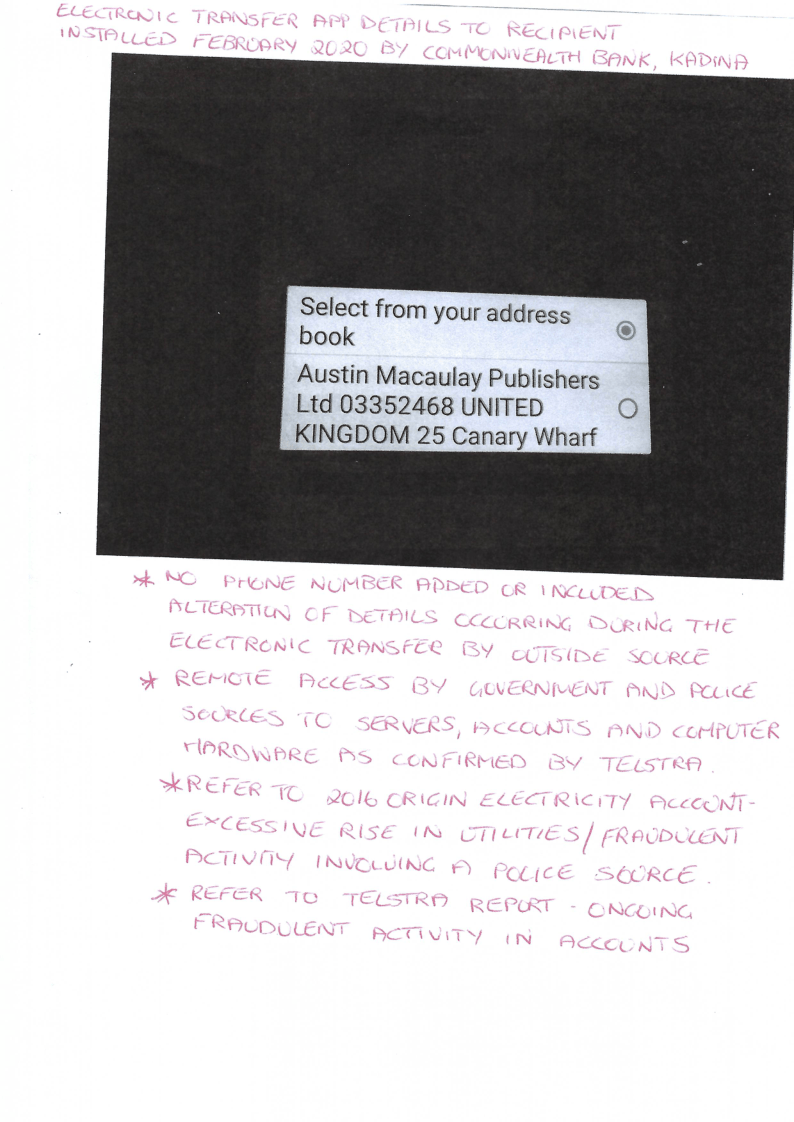 ELECTRONIC TRANSFER APP DETAILS TO RECIPIENT
INSTALLED FEBRUARY 2020 BY COMMONWEALTH BANK, KADINA
Select from your address
book
Austin Macaulay Publishers
Ltd 03352468 UNITED
KINGDOM 25 Canary Wharf
* NO PHONE NUMBER ADDED OR INCLUDED
ALTERATION OF DETAILS OCCURRING DURING THE
ELECTRONIC TRANSFER BY OUTSIDE SOURCE
* REMOTE ACCESS BY GOVERNMENT AND POLICE
SOURCES TO SERVERS, ACCOUNTS AND COMPUTER
HARDWARE AS CONFIRMED BY TELSTRA.
* REFER TO 2016 ORIGIN ELECTRICITY ACCOUNT-
EXCESSIVE RISE IN UTILITIES/FRAUDULENT
ACTIVITY INVOLVING A POLICE SOURCE.
* REFER TO TELSTRA REPORT - ONGOING
FRAUDULENT ACTIVITY IN ACCOUNTS